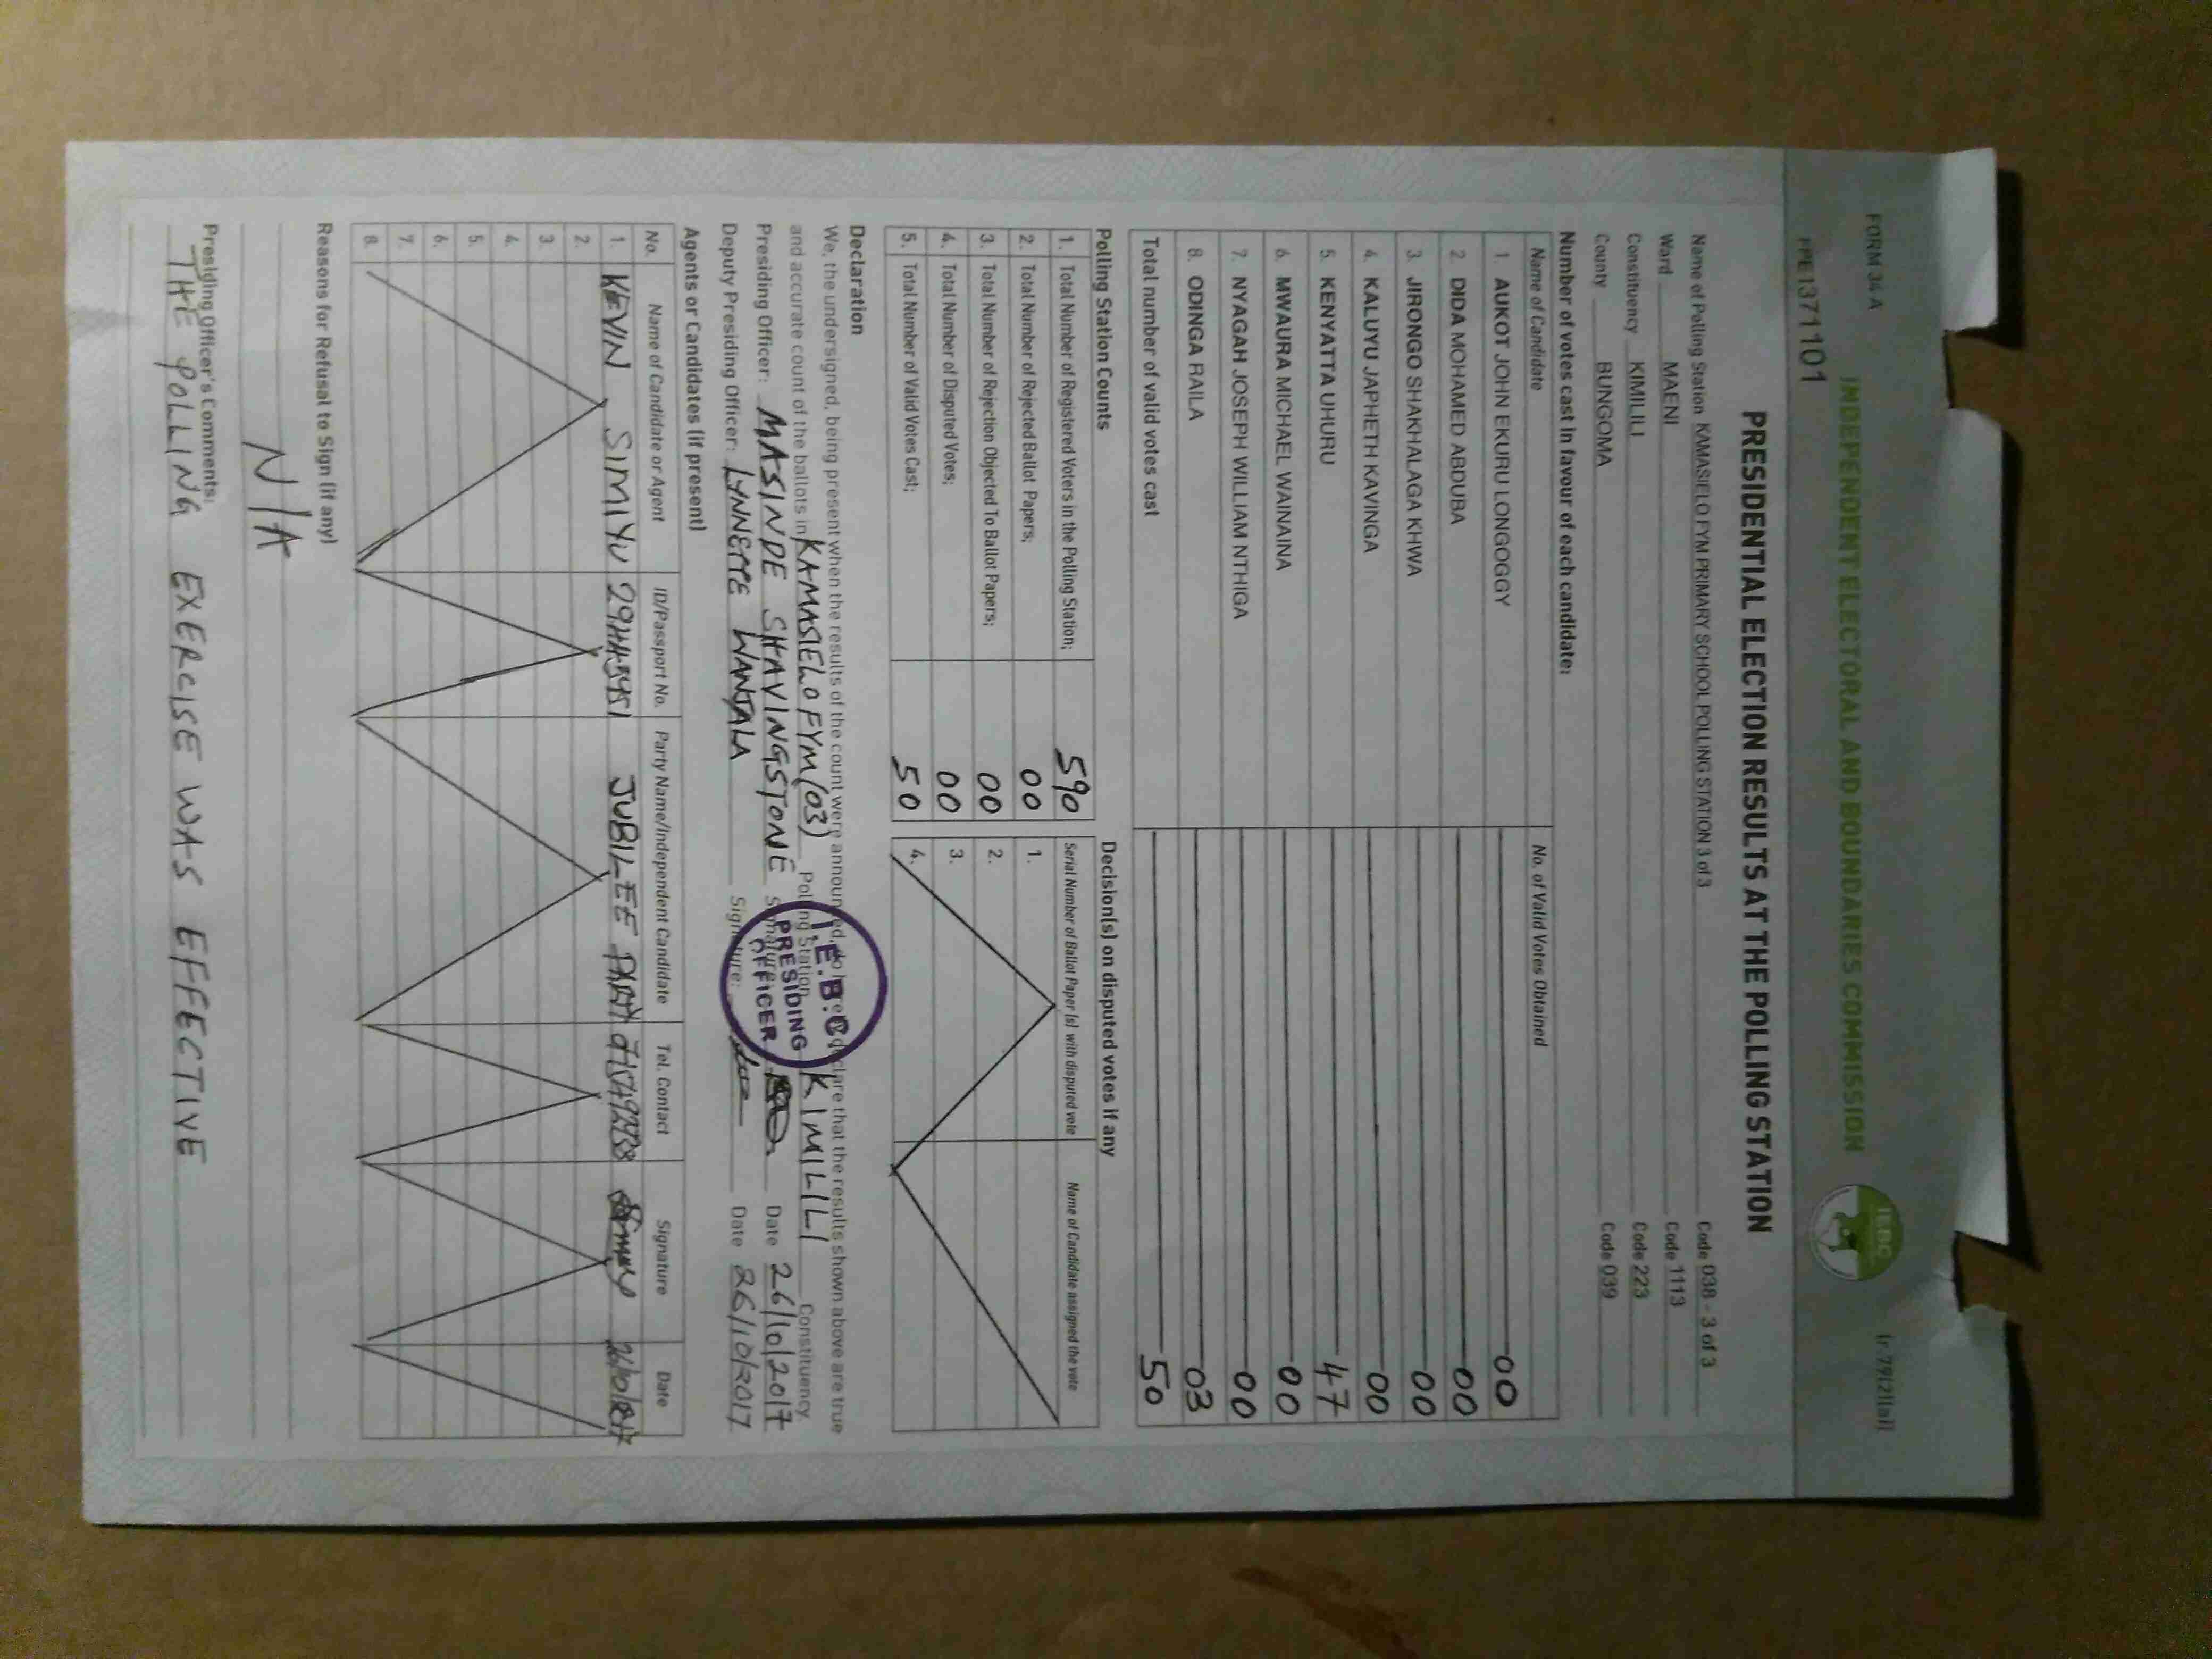 FORM 34 A
(r 79(2)(a))
INDEPENDENT ELECTORAL AND BOUNDARIES COMMISSION
IEBC
PPE1371101
PRESIDENTIAL ELECTION RESULTS AT THE POLLING STATION
Name of Polling Station KAMASIELO FYM PRIMARY SCHOOL POLLING STATION 3 of 3 Code 038 - 3 of 3
Ward MAENI Code 1113
Constituency KIMILILI Code 223
County BUNGOMA Code 039
Number of votes cast in favour of each candidate:
Name of Candidate No. of Valid Votes Obtained
1. AUKOT JOHN EKURU LONGOGGY 00
2. DIDA MOHAMED ABDUBA 00
3. JIRONGO SHAKHALAGA KHWA 00
4. KALUYU JAPHETH KAVINGA 00
5. KENYATTA UHURU 47
6. MWAURA MICHAEL WAINAINA 00
7. NYAGAH JOSEPH WILLIAM NTHIGA 00
8. ODINGA RAILA 03
Total number of valid votes cast 50
Polling Station Counts
1. Total Number of Registered Voters in the Polling Station; 590
2. Total Number of Rejected Ballot Papers; 00
3. Total Number of Rejection Objected To Ballot Papers; 00
4. Total Number of Disputed Votes; 00
5. Total Number of Valid Votes Cast; 50
Decision(s) on disputed votes if any
Serial Number of Ballot Paper (s) with disputed vote Name of Candidate assigned the vote
1.
2.
3.
4.
Declaration
We, the undersigned, being present when the results of the count were announced, do hereby declare that the results shown above are true
and accurate count of the ballots in KAMASIELO FYM (03) Polling Station KIMILILI Constituency
Presiding Officer: MASINDE SHAVINGSTONE Signature: Date 26/10/2017
Deputy Presiding Officer: LYNNETTE WANJALA Signature: Date 26/10/2017
I.E.B.C
PRESIDING
OFFICER
Agents or Candidates (if present)
No. Name of Candidate or Agent ID/Passport No. Party Name/Independent Candidate Tel. Contact Signature Date
1. KEVIN SIMIYU JUBILEE
2.
3.
4.
5.
6.
7.
8.
Reasons for Refusal to Sign (if any)
N/A
Presiding Officer's Comments:
THE POLLING EXERCISE WAS EFFECTIVE